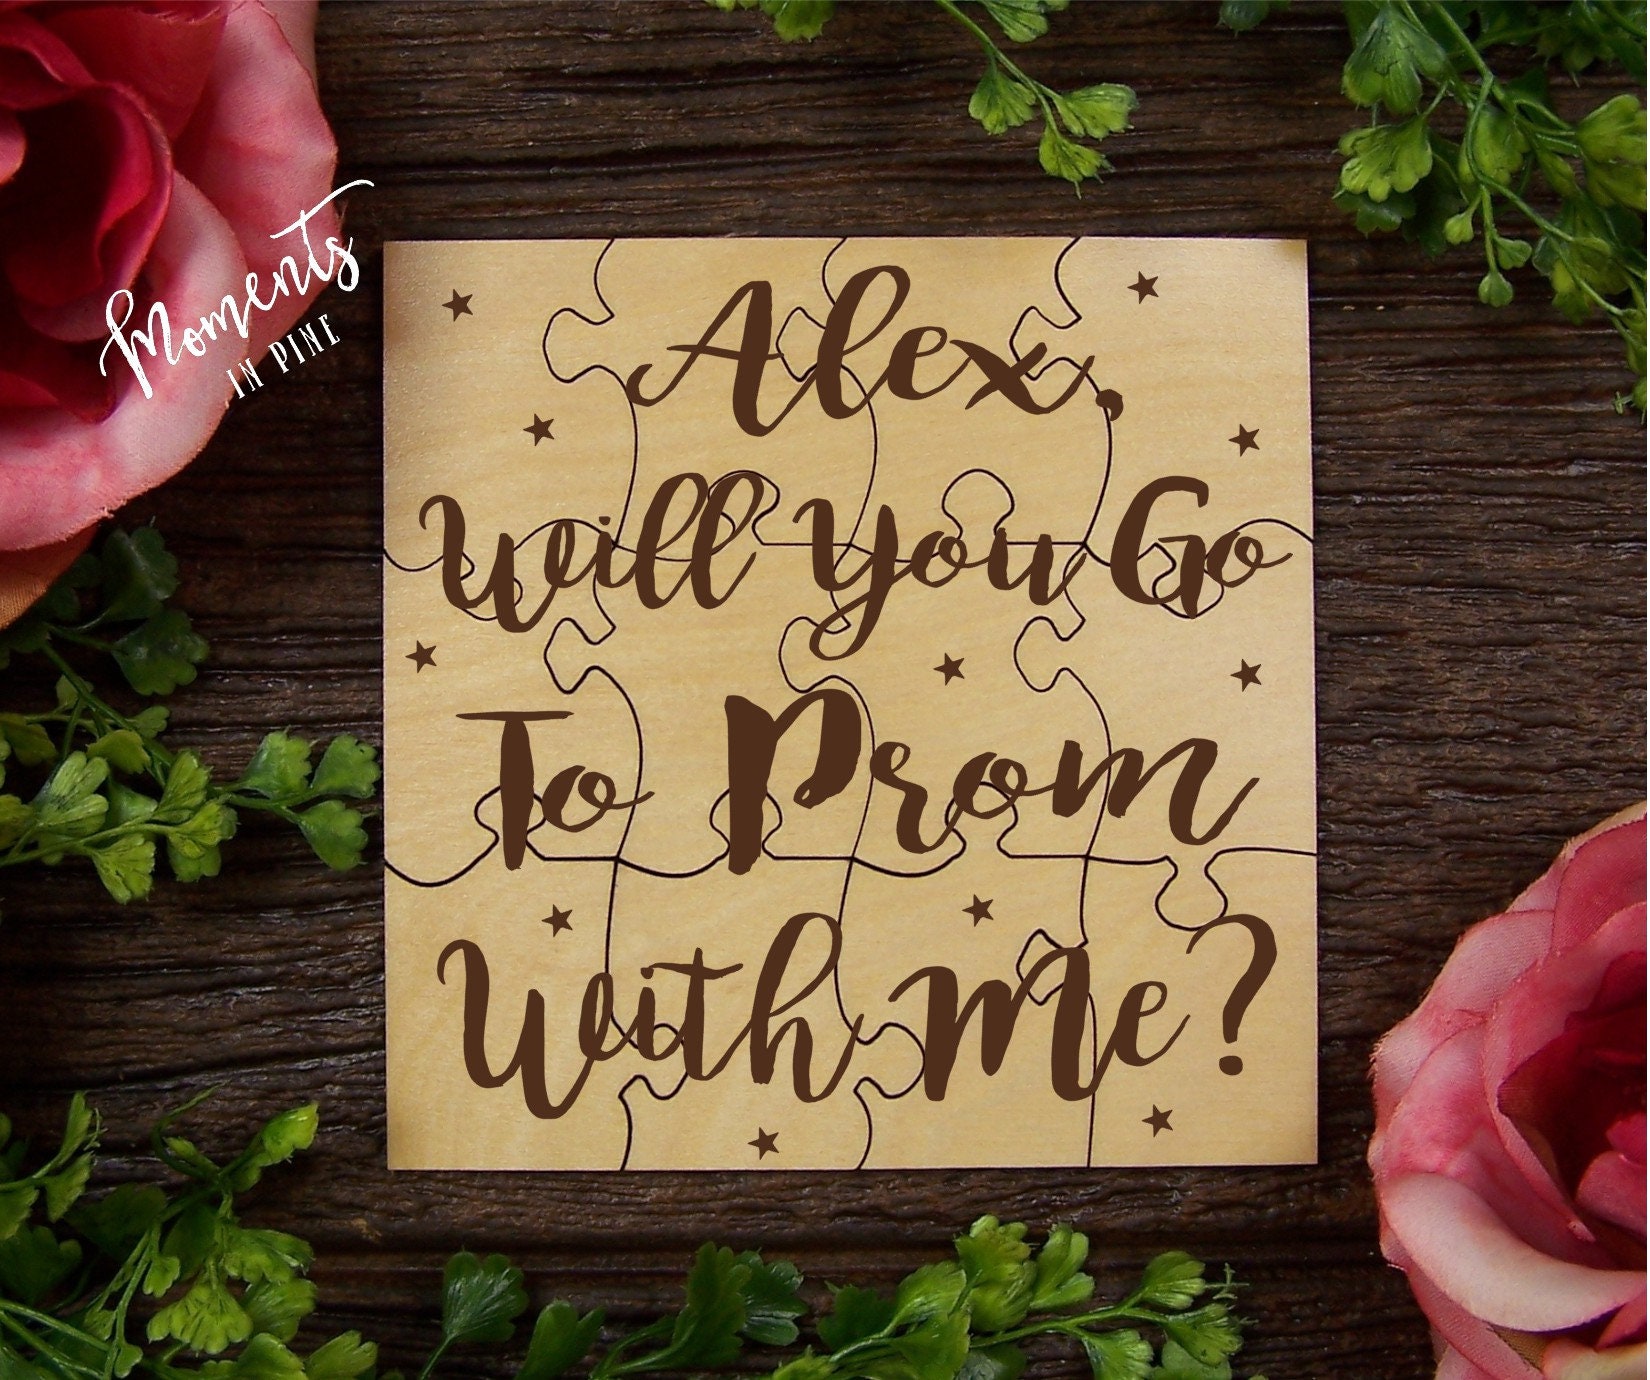 Moments
IN PINE
Alex,
Will You Go
To Prom
With Me?